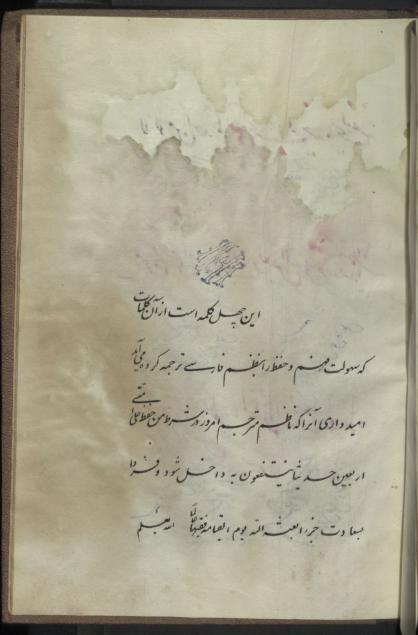 این چهل کلمه است از آن کلمات
که سهولت فهم و حفظ را بنظم فارسی ترجمه کرده می آید
امیدواری آنرا که ناظم مترجم امروز در شرط من حفظ علی امتی
اربعین حدیثا ینتفعون به داخل شود و فردا
بسعادت جزاء ابعثه الله یوم القیامة فقیها عالما